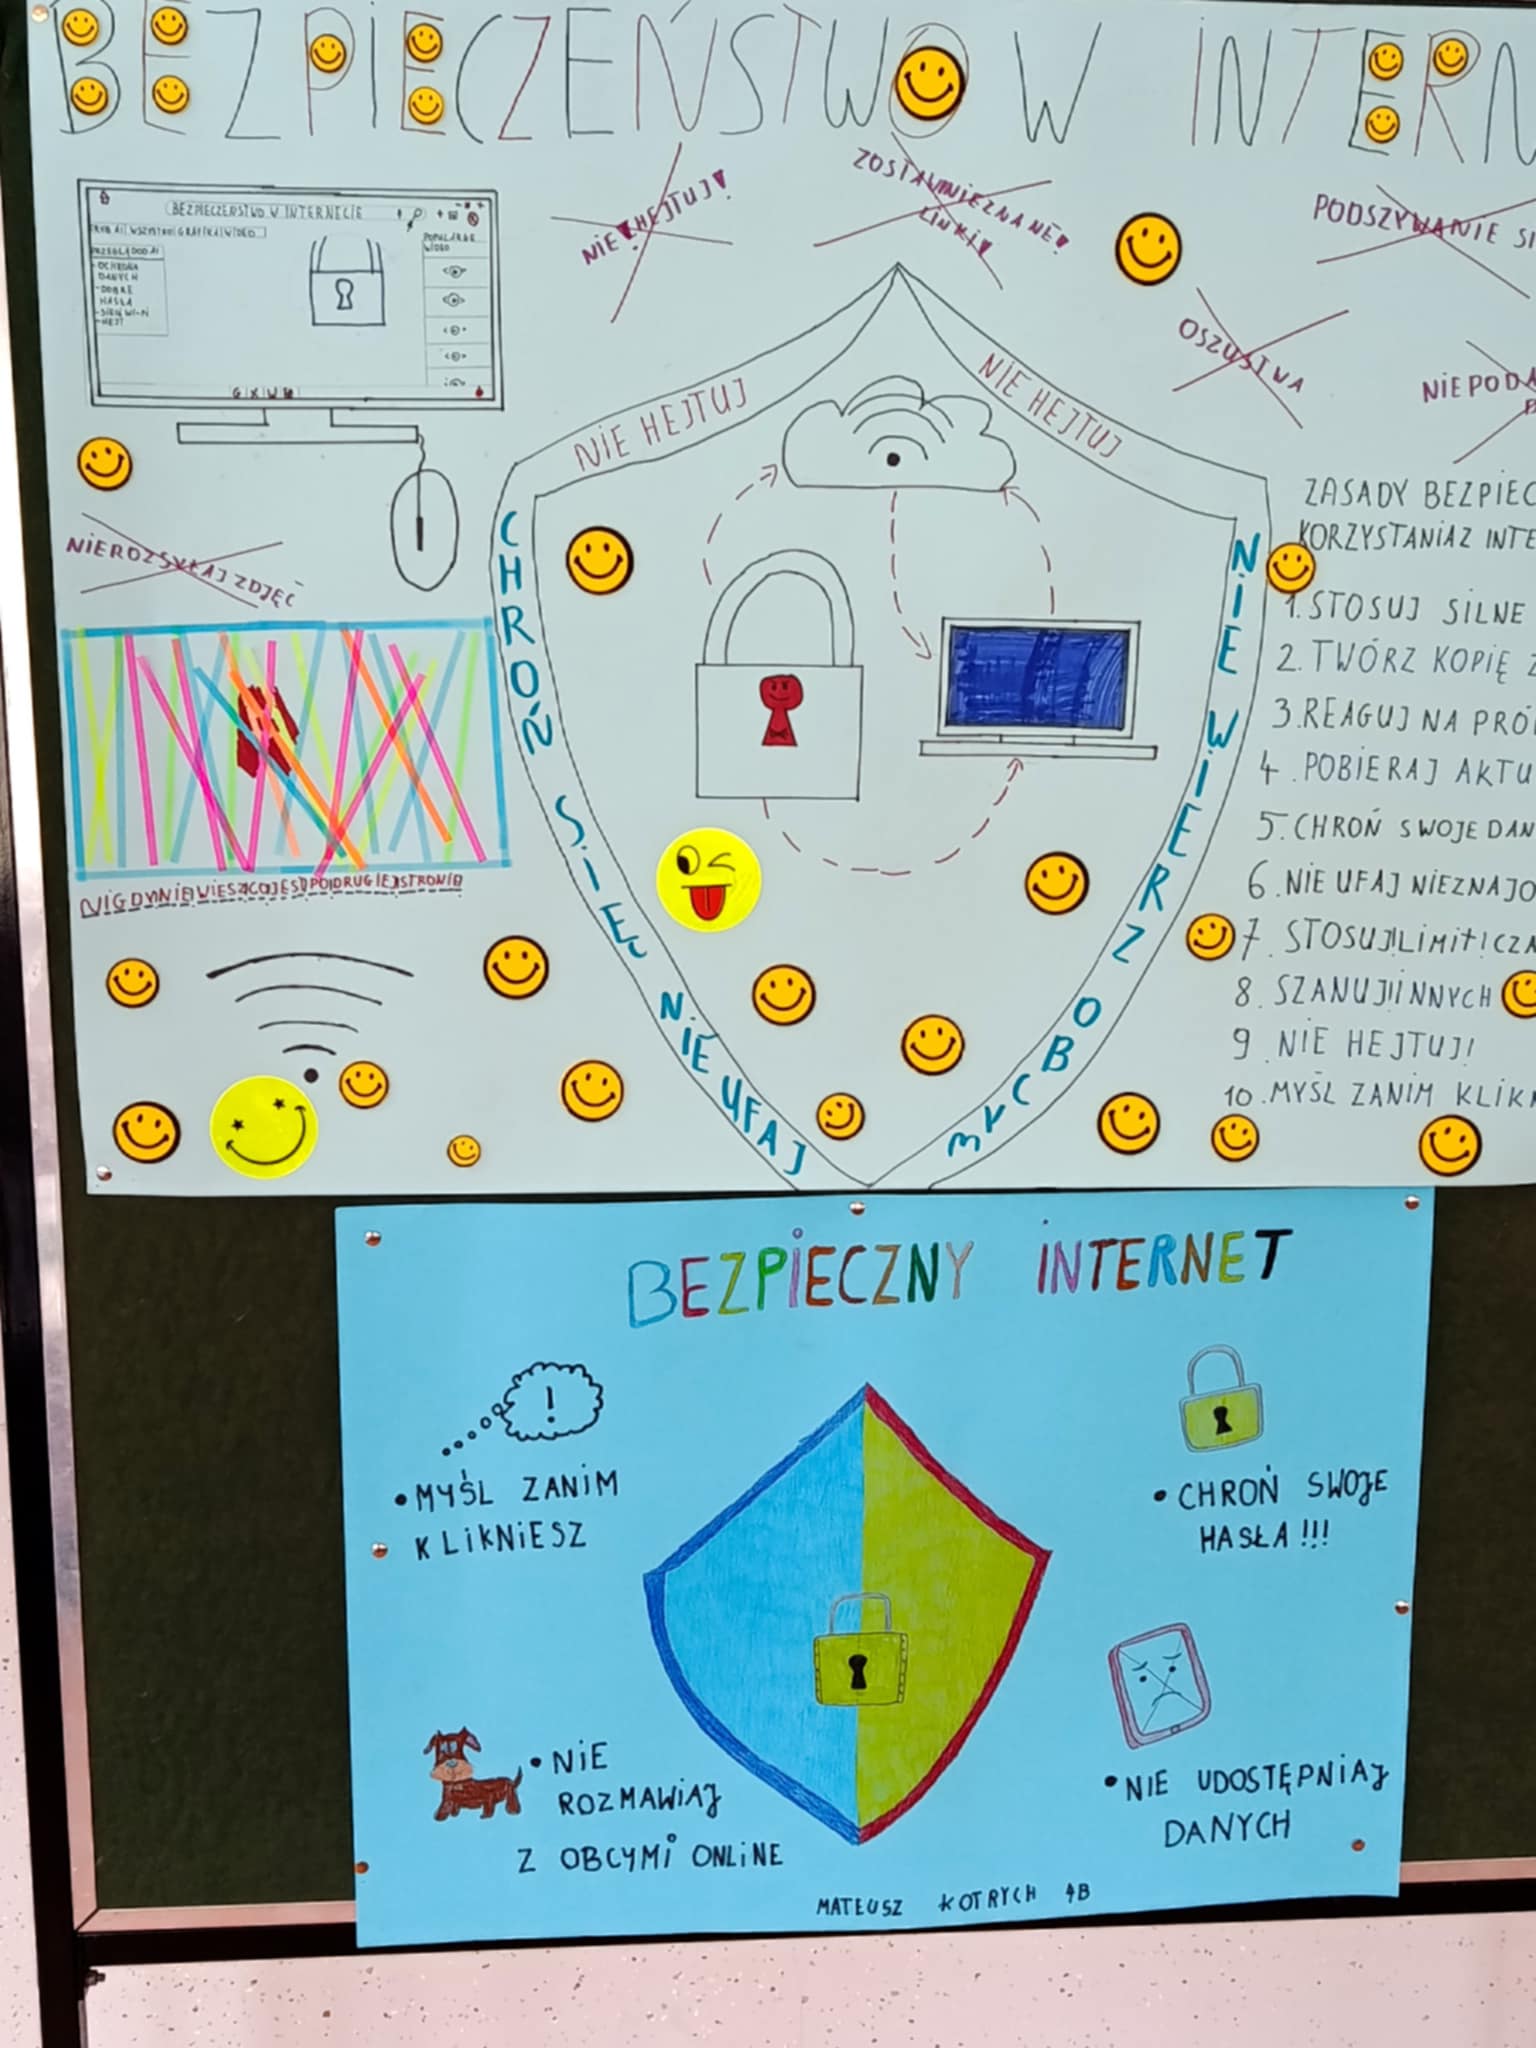 BEZPIECZEŃSTWO W INTERN
BEZPIECZEŃSTWO W INTERNECIE
WSZYSTKO GRAFIKA WIDEO
POPULARNE
WIDEO
PRZEGLĄD OD AI
- OCHRONA
DANYCH
- DOBRE
HASŁA
- SIEĆ WI-FI
- HEJT
NIE HEJTUJ!
ZOSTAW NIEZNANE!
LINKI!
PODSZYWANIE SI
OSZUSTWA
NIE PODA
NIE ROZSYŁAJ ZDJĘĆ
NIGDY NIE WIESZ CO JEST PO DRUGIEJ STRONIE
NIE HEJTUJ
NIE HEJTUJ
CHROŃ SIĘ NIE UFAJ
NIE WIERZ OBCYM
ZASADY BEZPIEC
KORZYSTANIA Z INTE
1. STOSUJ SILNE
2. TWÓRZ KOPIĘ Z
3. REAGUJ NA PRÓ
4. POBIERAJ AKTU
5. CHROŃ SWOJE DAN
6. NIE UFAJ NIEZNAJO
7. STOSUJ LIMIT CZA
8. SZANUJ INNYCH
9. NIE HEJTUJ!
10. MYŚL ZANIM KLIKN
BEZPIECZNY INTERNET
!
• MYŚL ZANIM
KLIKNIESZ
• CHROŃ SWOJE
HASŁA!!!
• NIE
ROZMAWIAJ
Z OBCYMI ONLINE
• NIE UDOSTĘPNIAJ
DANYCH
MATEUSZ KOTRYCH 4B